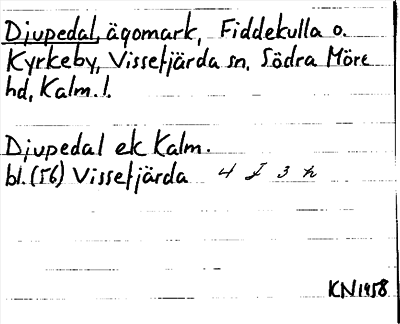 Djupedal, ägomark, Fiddekulla o.
Kyrkeby, Vissefjärda sn, Södra Möre
hd, Kalm. l.
Djupedal ek Kalm.
bl. (56) Vissefjärda 4 I 3 h
KN 1958